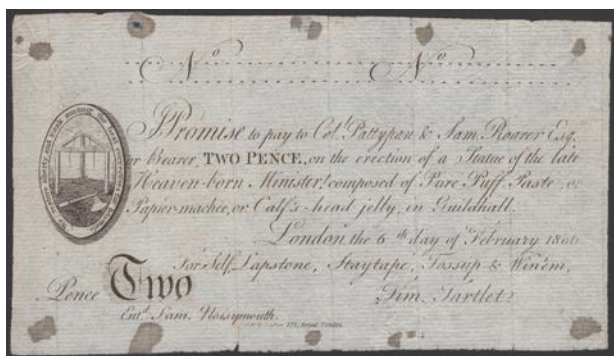 No No
I Promise to pay to Col. Pattypan & Sam. Roarer Esq.
or Bearer TWO PENCE, on the erection of a Statue of the late
Heaven-born Minister! composed of Pure Puff-Paste, or
Papier-machee, or Calf's-head jelly, in Guildhall.
London the 6th day of February 1806
For Self, Lapstone, Staytape, Tossup & Win'em,
Pence Two
Tim. Tartlet
Entd. Sam. Noseymouth.